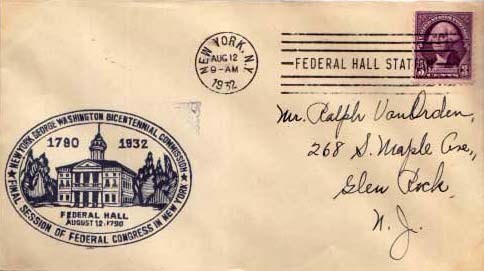 NEW YORK, N.Y.
AUG 12
9-AM
1932
FEDERAL HALL STATION
3
Mr. Ralph VanOrden,
268 S. Maple Ave.,
Glen Rock,
N. J.
NEW YORK GEORGE WASHINGTON BICENTENNIAL COMMISSION
1790 1932
FEDERAL HALL
AUGUST 12, 1790
FINAL SESSION OF FEDERAL CONGRESS IN NEW YORK